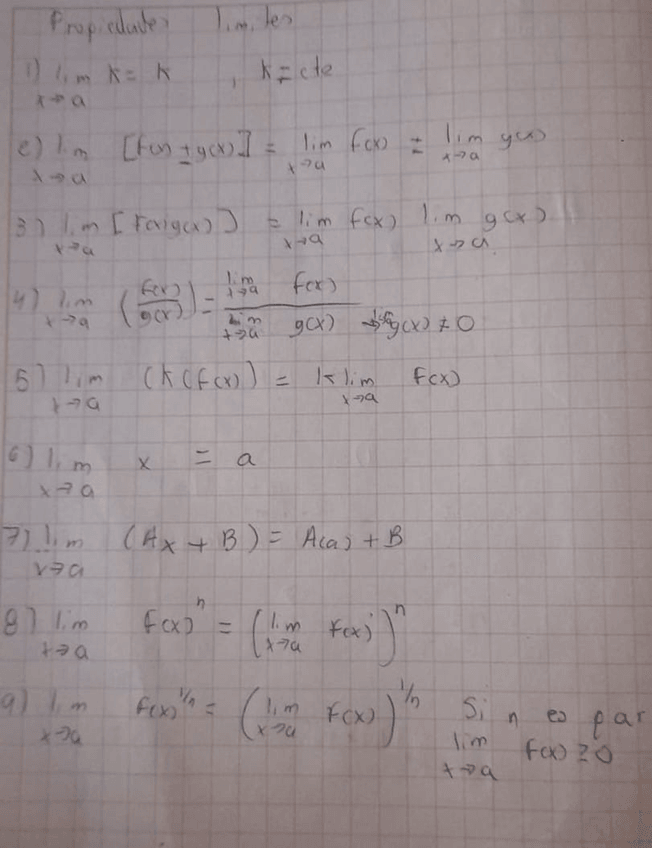 Propiedades limites
1) lim x→a K = K , K = cte
2) lim x→a [f(x) ± g(x)] = lim x→a f(x) ± lim x→a g(x)
3) lim x→a [f(x)g(x)] = lim x→a f(x) lim x→a g(x)
4) lim x→a (f(x)/g(x)) = lim x→a f(x) / lim x→a g(x) → g(x) ≠ 0
5) lim x→a (K(f(x)) = K lim x→a f(x)
6) lim x→a x = a
7) lim x→a (Ax + B) = A(a) + B
8) lim x→a f(x)^n = (lim x→a f(x))^n
9) lim x→a f(x)^1/n = (lim x→a f(x))^1/n Si n es par
lim x→a f(x) ≥ 0